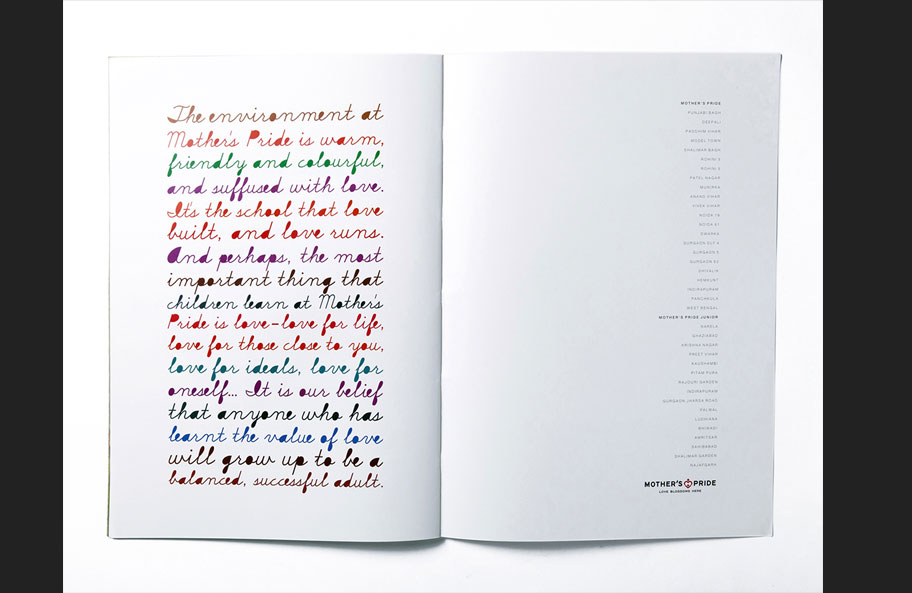 The environment at
Mother's Pride is warm,
friendly and colourful,
and suffused with love.
It's the school that love
built, and love runs.
And perhaps, the most
important thing that
children learn at Mother's
Pride is love-love for life,
love for those close to you,
love for ideals, love for
oneself... It is our belief
that anyone who has
learnt the value of love
will grow up to be a
balanced, successful adult.
MOTHER'S PRIDE
PUNJABI BAGH
DEEPALI
PASCHIM VIHAR
MODEL TOWN
SHALIMAR BAGH
ROHINI 3
ROHINI
PATEL NAGAR
MUNIRKA
ANAND VIHAR
VIVEK VIHAR
NOIDA
NOIDA
DWARKA
GURGAON
GURGAON
GURGAON
SHIVALIK
HEMKUNT
INDIRAPURAM
PANCHKULA
WEST BENGAL
MOTHER'S PRIDE JUNIOR
NARELA
GHAZIABAD
KRISHNA NAGAR
PREET VIHAR
KAUSHAMBI
PITAM PURA
RAJOURI GARDEN
INDIRAPURAM
GURGAON JHARSA ROAD
PALWAL
LUDHIANA
BHIWADI
AMRITSAR
SAHIBABAD
SHALIMAR GARDEN
NAJAFGARH
MOTHER'S PRIDE
LOVE BLOSSOMS HERE